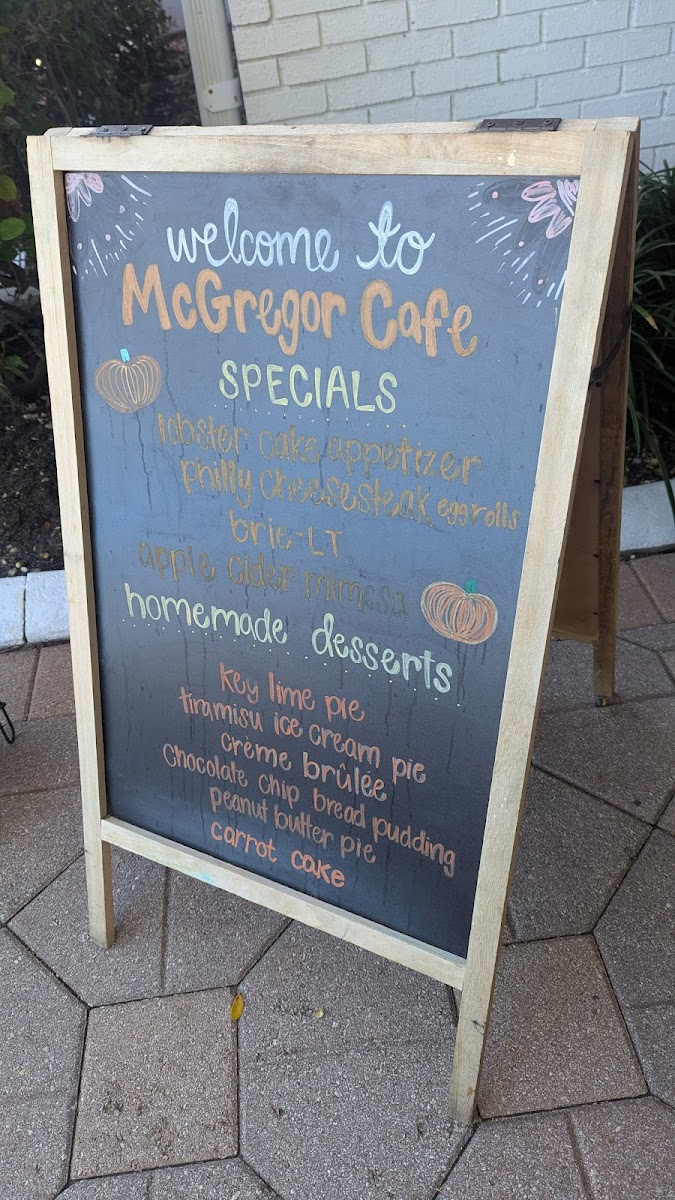 welcome to
McGregor Cafe
SPECIALS
lobster cake appetizer
philly cheesesteak eggrolls
brie-LT
apple cider mimosa
homemade desserts
key lime pie
tiramisu ice cream pie
crème brûlée
Chocolate chip bread pudding
peanut butter pie
carrot cake